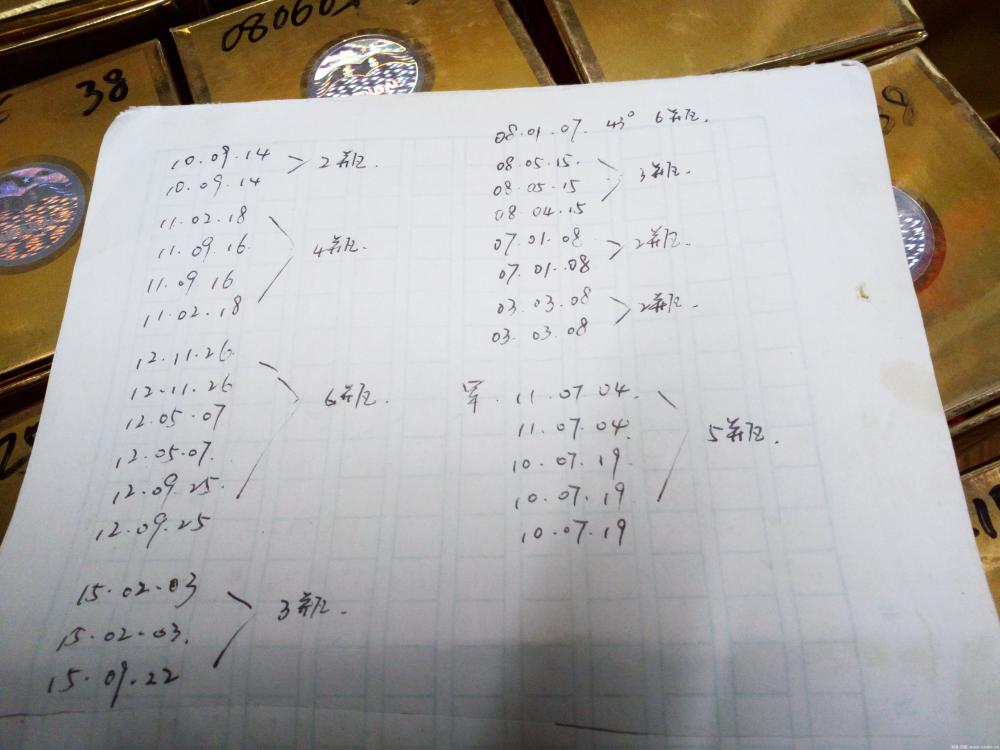 38
08060
10.09.14
10.09.14
2瓶.
11.02.18
11.09.16
11.09.16
11.02.18
4瓶.
12.11.26
12.11.26
12.05.07
12.05.07.
12.09.25.
12.09.25
6瓶.
15.02.03
15.02.03.
15.09.22
3瓶.
08.01.07. 43° 6瓶.
08.05.15.
08.05.15
08.04.15
3瓶.
07.01.08
07.01.08
2瓶.
03.03.08
03.03.08
2瓶.
军. 11.07.04.
11.07.04.
10.07.19.
10.07.19
10.07.19
5瓶.